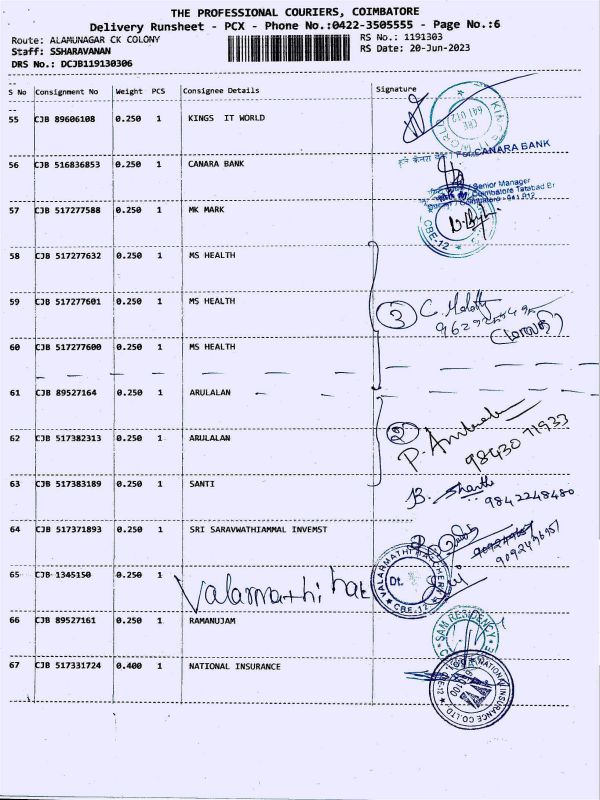 THE PROFESSIONAL COURIERS, COIMBATORE
Delivery Runsheet - PCX - Phone No.:0422-3505555 - Page No.:6
Route: ALAMUNAGAR CK COLONY
RS No.: 1191303
Staff: SSHARAVANAN
RS Date: 20-Jun-2023
DRS No.: DCJB119130306
S No Consignment No Weight PCS Consignee Details Signature
55 CJB 89606108 0.250 1 KINGS IT WORLD
CBE
641 012
56 CJB 516836853 0.250 1 CANARA BANK
For CANARA BANK
Senior Manager
Coimbatore Tatabad Br
Coimbatore - 641 012
57 CJB 517277588 0.250 1 MK MARK
CBE-12
58 CJB 517277632 0.250 1 MS HEALTH
59 CJB 517277601 0.250 1 MS HEALTH
3
60 CJB 517277600 0.250 1 MS HEALTH
61 CJB 89527164 0.250 1 ARULALAN
2
62 CJB 517382313 0.250 1 ARULALAN
9843071933
63 CJB 517383189 0.250 1 SANTI
B. Shanthi
9842248480
64 CJB 517371893 0.250 1 SRI SARAVWATHIAMMAL INVEMST
65 CJB 1345150 0.250 1 Valarmathi hat
VALARMATHI HATCHERY
Dt.
CBE-12
66 CJB 89527161 0.250 1 RAMANUJAM
SAM RESIDENCY
67 CJB 517331724 0.400 1 NATIONAL INSURANCE
NATIONAL INSURANCE CO.LTD